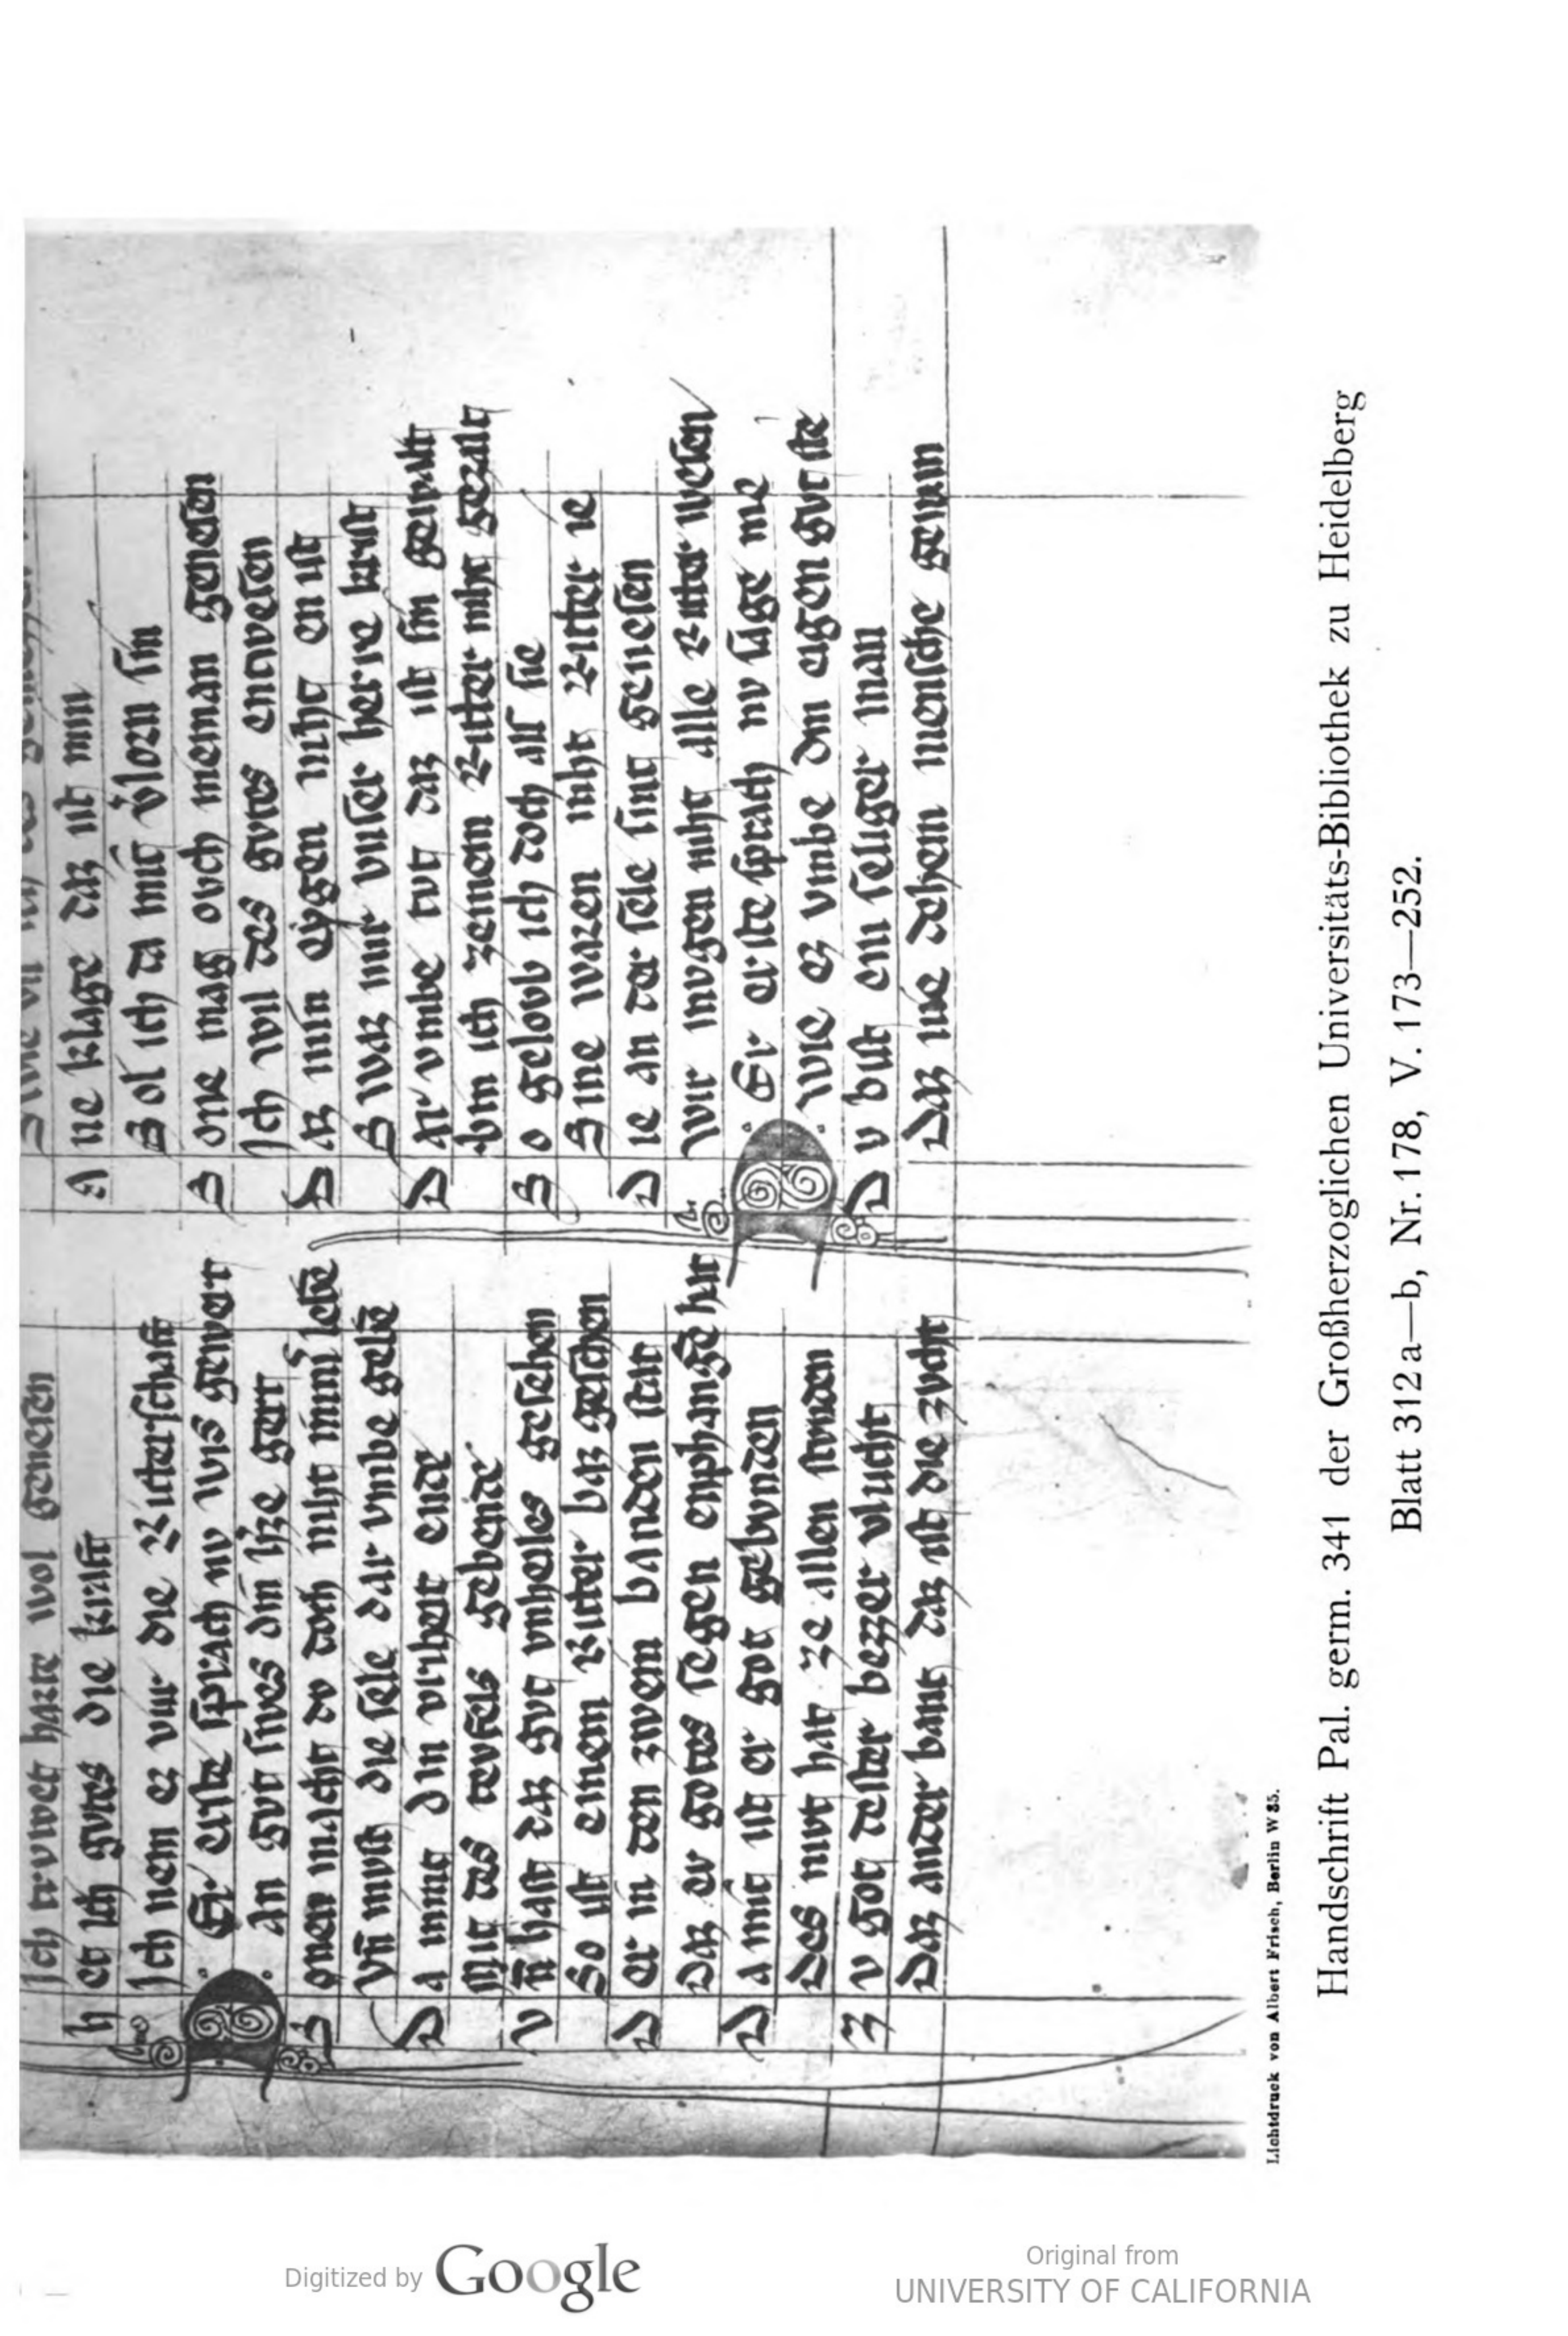 Ich trvwet harte wol genesen
Het ich gvtes die kraft
Ich nem ez vur die Ritterschaft
Er erste sprach nv wis gewert
an gvt sives din h̄ze gert
Donen macht dv doch niht im̄ lebē
Vn̄ mvst die sele dar vmbe gebē
Da nimt din virheit ende
Mit des tevfels gebende
Vn̄ hast daz gvt vnheiles gesehen
So ist einem Ritter baz geschen
Der in den zwein banden stat
Daz er gotes segen enphangē hat
Da mit ist er got gebvnden
Des mvt hat ze allen stvnden
Zv got dester bezzer vlucht
Daz ander bant daz ist die zvcht
Ane klage daz ist min
Sol ich da mit v̄lorn sin
Sone mag ovch nieman genesen
Ich wil des gvtes entwesen
Daz min eygen niht en ist
Swaz mir vnser herre krist
Dar vmbe tvt daz ist sin gewalt
Bin ich zeinem Ritter niht gezalt
So gelovb ich doch als sie
Sine waren niht Ritter ie
Die an der sele sint genesen
Wir mvgen niht alle Ritter wesen
Er erste sprach nv sage me
Wie ez vmbe din eigen gvt ste
Dv bist ein seliger man
Daz nie dehein mensche gewan
Lichtdruck von Albert Frisch, Berlin W 35.
Handschrift Pal. germ. 341 der Großherzoglichen Universitäts-Bibliothek zu Heidelberg
Blatt 312 a—b, Nr. 178, V. 173—252.
Digitized by Google
Original from
UNIVERSITY OF CALIFORNIA